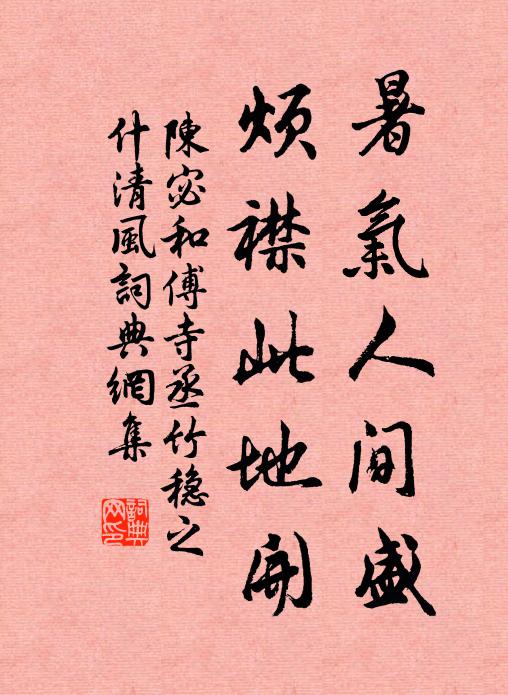 暑氣人间盛
煩襟此地開
陳宓和傅寺丞竹穩之
什清風詞典網集
詞典
网印